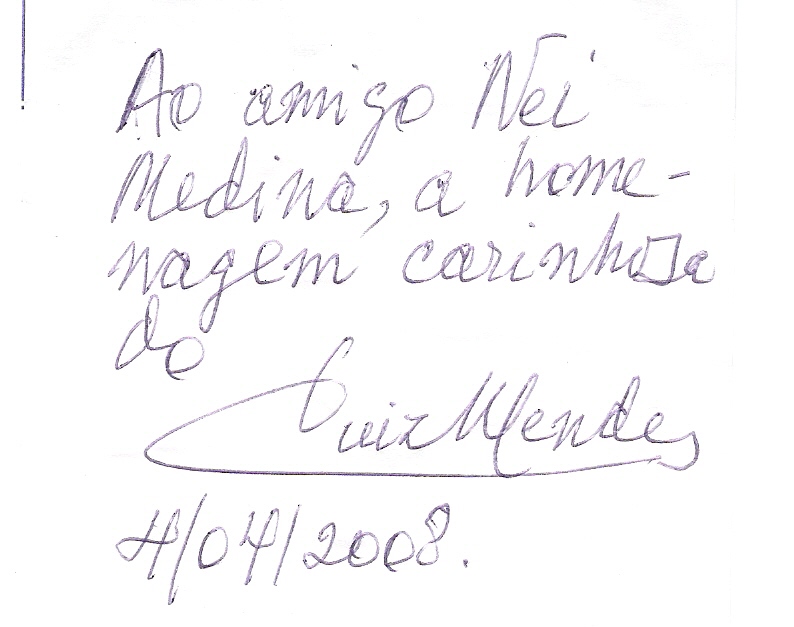 Ao amigo Nei
Medina, a home-
nagem carinhosa
do
Luiz Mendes
4/04/2008.